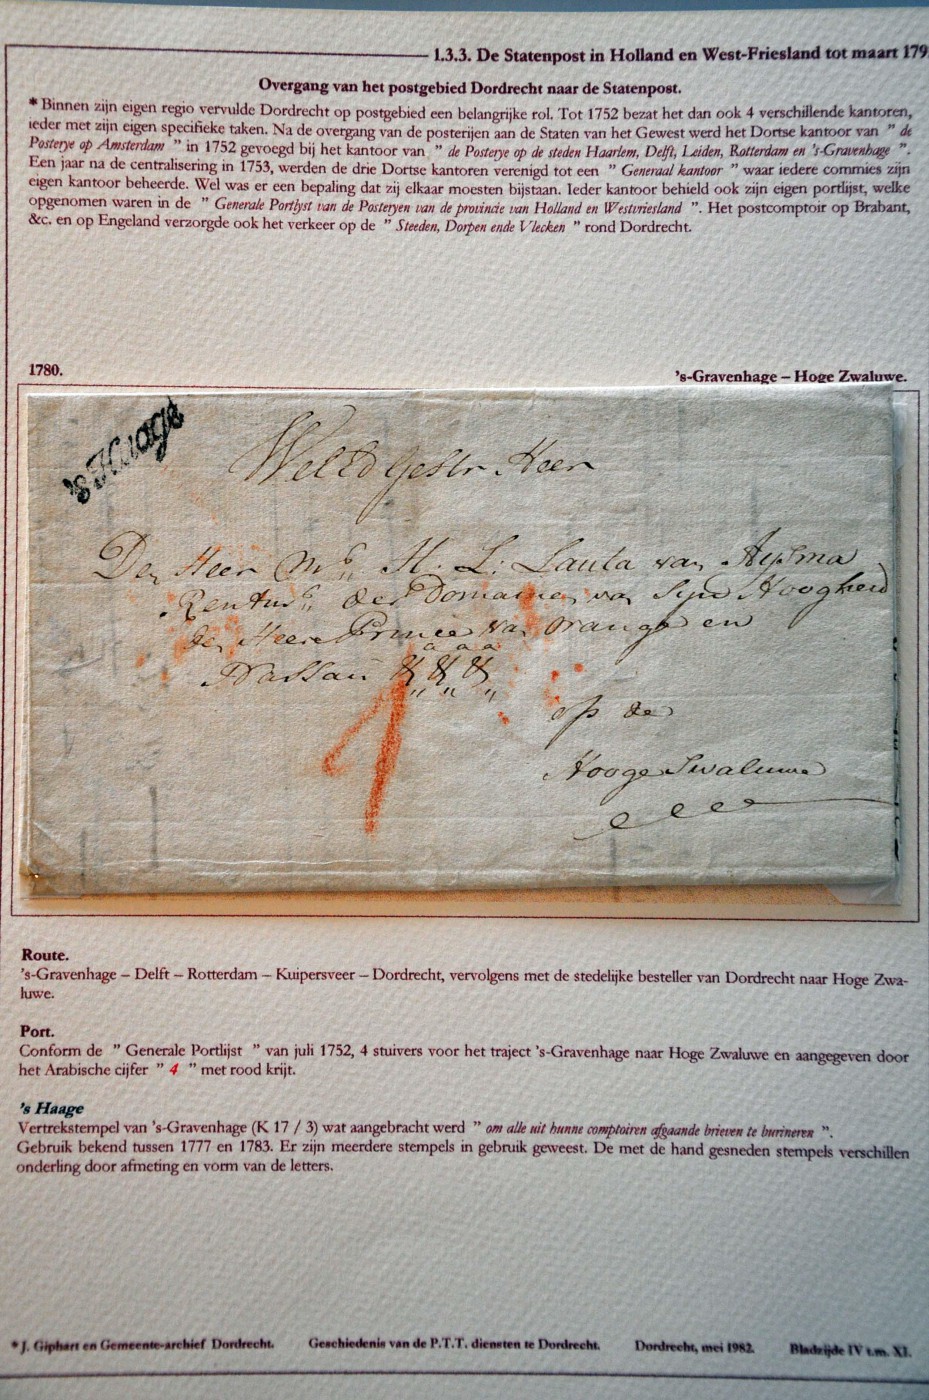 1.3.3. De Statenpost in Holland en West-Friesland tot maart 179
Overgang van het postgebied Dordrecht naar de Statenpost.
* Binnen zijn eigen regio vervulde Dordrecht op postgebied een belangrijke rol. Tot 1752 bezat het dan ook 4 verschillende kantoren,
ieder met zijn eigen specifieke taken. Na de overgang van de posterijen aan de Staten van het Gewest werd het Dortse kantoor van " de
Posterye op Amsterdam " in 1752 gevoegd bij het kantoor van " de Posterye op de steden Haarlem, Delft, Leiden, Rotterdam en 's-Gravenhage ".
Een jaar na de centralisering in 1753, werden de drie Dortse kantoren verenigd tot een " Generaal kantoor " waar iedere commies zijn
eigen kantoor beheerde. Wel was er een bepaling dat zij elkaar moesten bijstaan. Ieder kantoor behield ook zijn eigen portlijst, welke
opgenomen waren in de " Generale Portlyst van de Posteryen van de provincie van Holland en Westvriesland ". Het postcomptoir op Brabant,
&c. en op Engeland verzorgde ook het verkeer op de " Steeden, Dorpen ende Vlecken " rond Dordrecht.
1780.
's-Gravenhage – Hoge Zwaluwe.
's Haage
WelEdGestr. Heer
Den Heer Mr. H. L. Lauta van Aysma
Rentmr. der Domainen van Syne Hoogheid
den Heere Prince van Orange en
Nassau &a &a &a
op de
Hooge Swaluwe
Route.
's-Gravenhage – Delft – Rotterdam – Kuipersveer – Dordrecht, vervolgens met de stedelijke besteller van Dordrecht naar Hoge Zwa-
luwe.
Port.
Conform de " Generale Portlijst " van juli 1752, 4 stuivers voor het traject 's-Gravenhage naar Hoge Zwaluwe en aangegeven door
het Arabische cijfer " 4 " met rood krijt.
's Haage
Vertrekstempel van 's-Gravenhage (K 17 / 3) wat aangebracht werd " om alle uit hunne comptoiren afgaande brieven te burineren ".
Gebruik bekend tussen 1777 en 1783. Er zijn meerdere stempels in gebruik geweest. De met de hand gesneden stempels verschillen
onderling door afmeting en vorm van de letters.
* J. Giphart en Gemeente-archief Dordrecht. Geschiedenis van de P.T.T. diensten te Dordrecht. Dordrecht, mei 1982. Bladzijde IV t.m. XI.